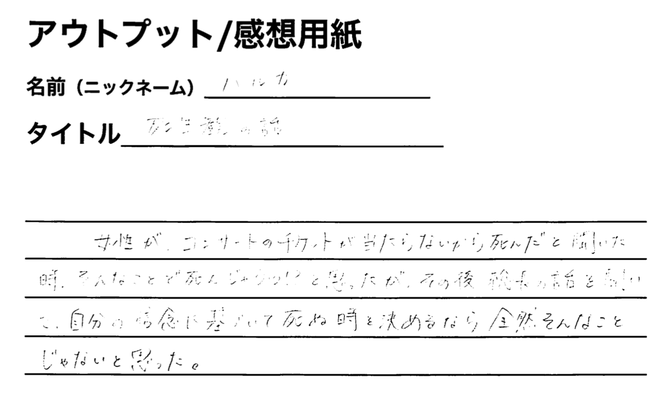 アウトプット/感想用紙
名前（ニックネーム） ハルカ
タイトル 死生観の話
女性が、コンサートのチケットが当たらないから死んだと聞いた
時、そんなことで死んじゃうの!?と思ったが、その後 院長の話を聞い
て、自分の 信念に基づいて 死ぬ時を決めるなら 全然そんなこと
じゃないと思った。